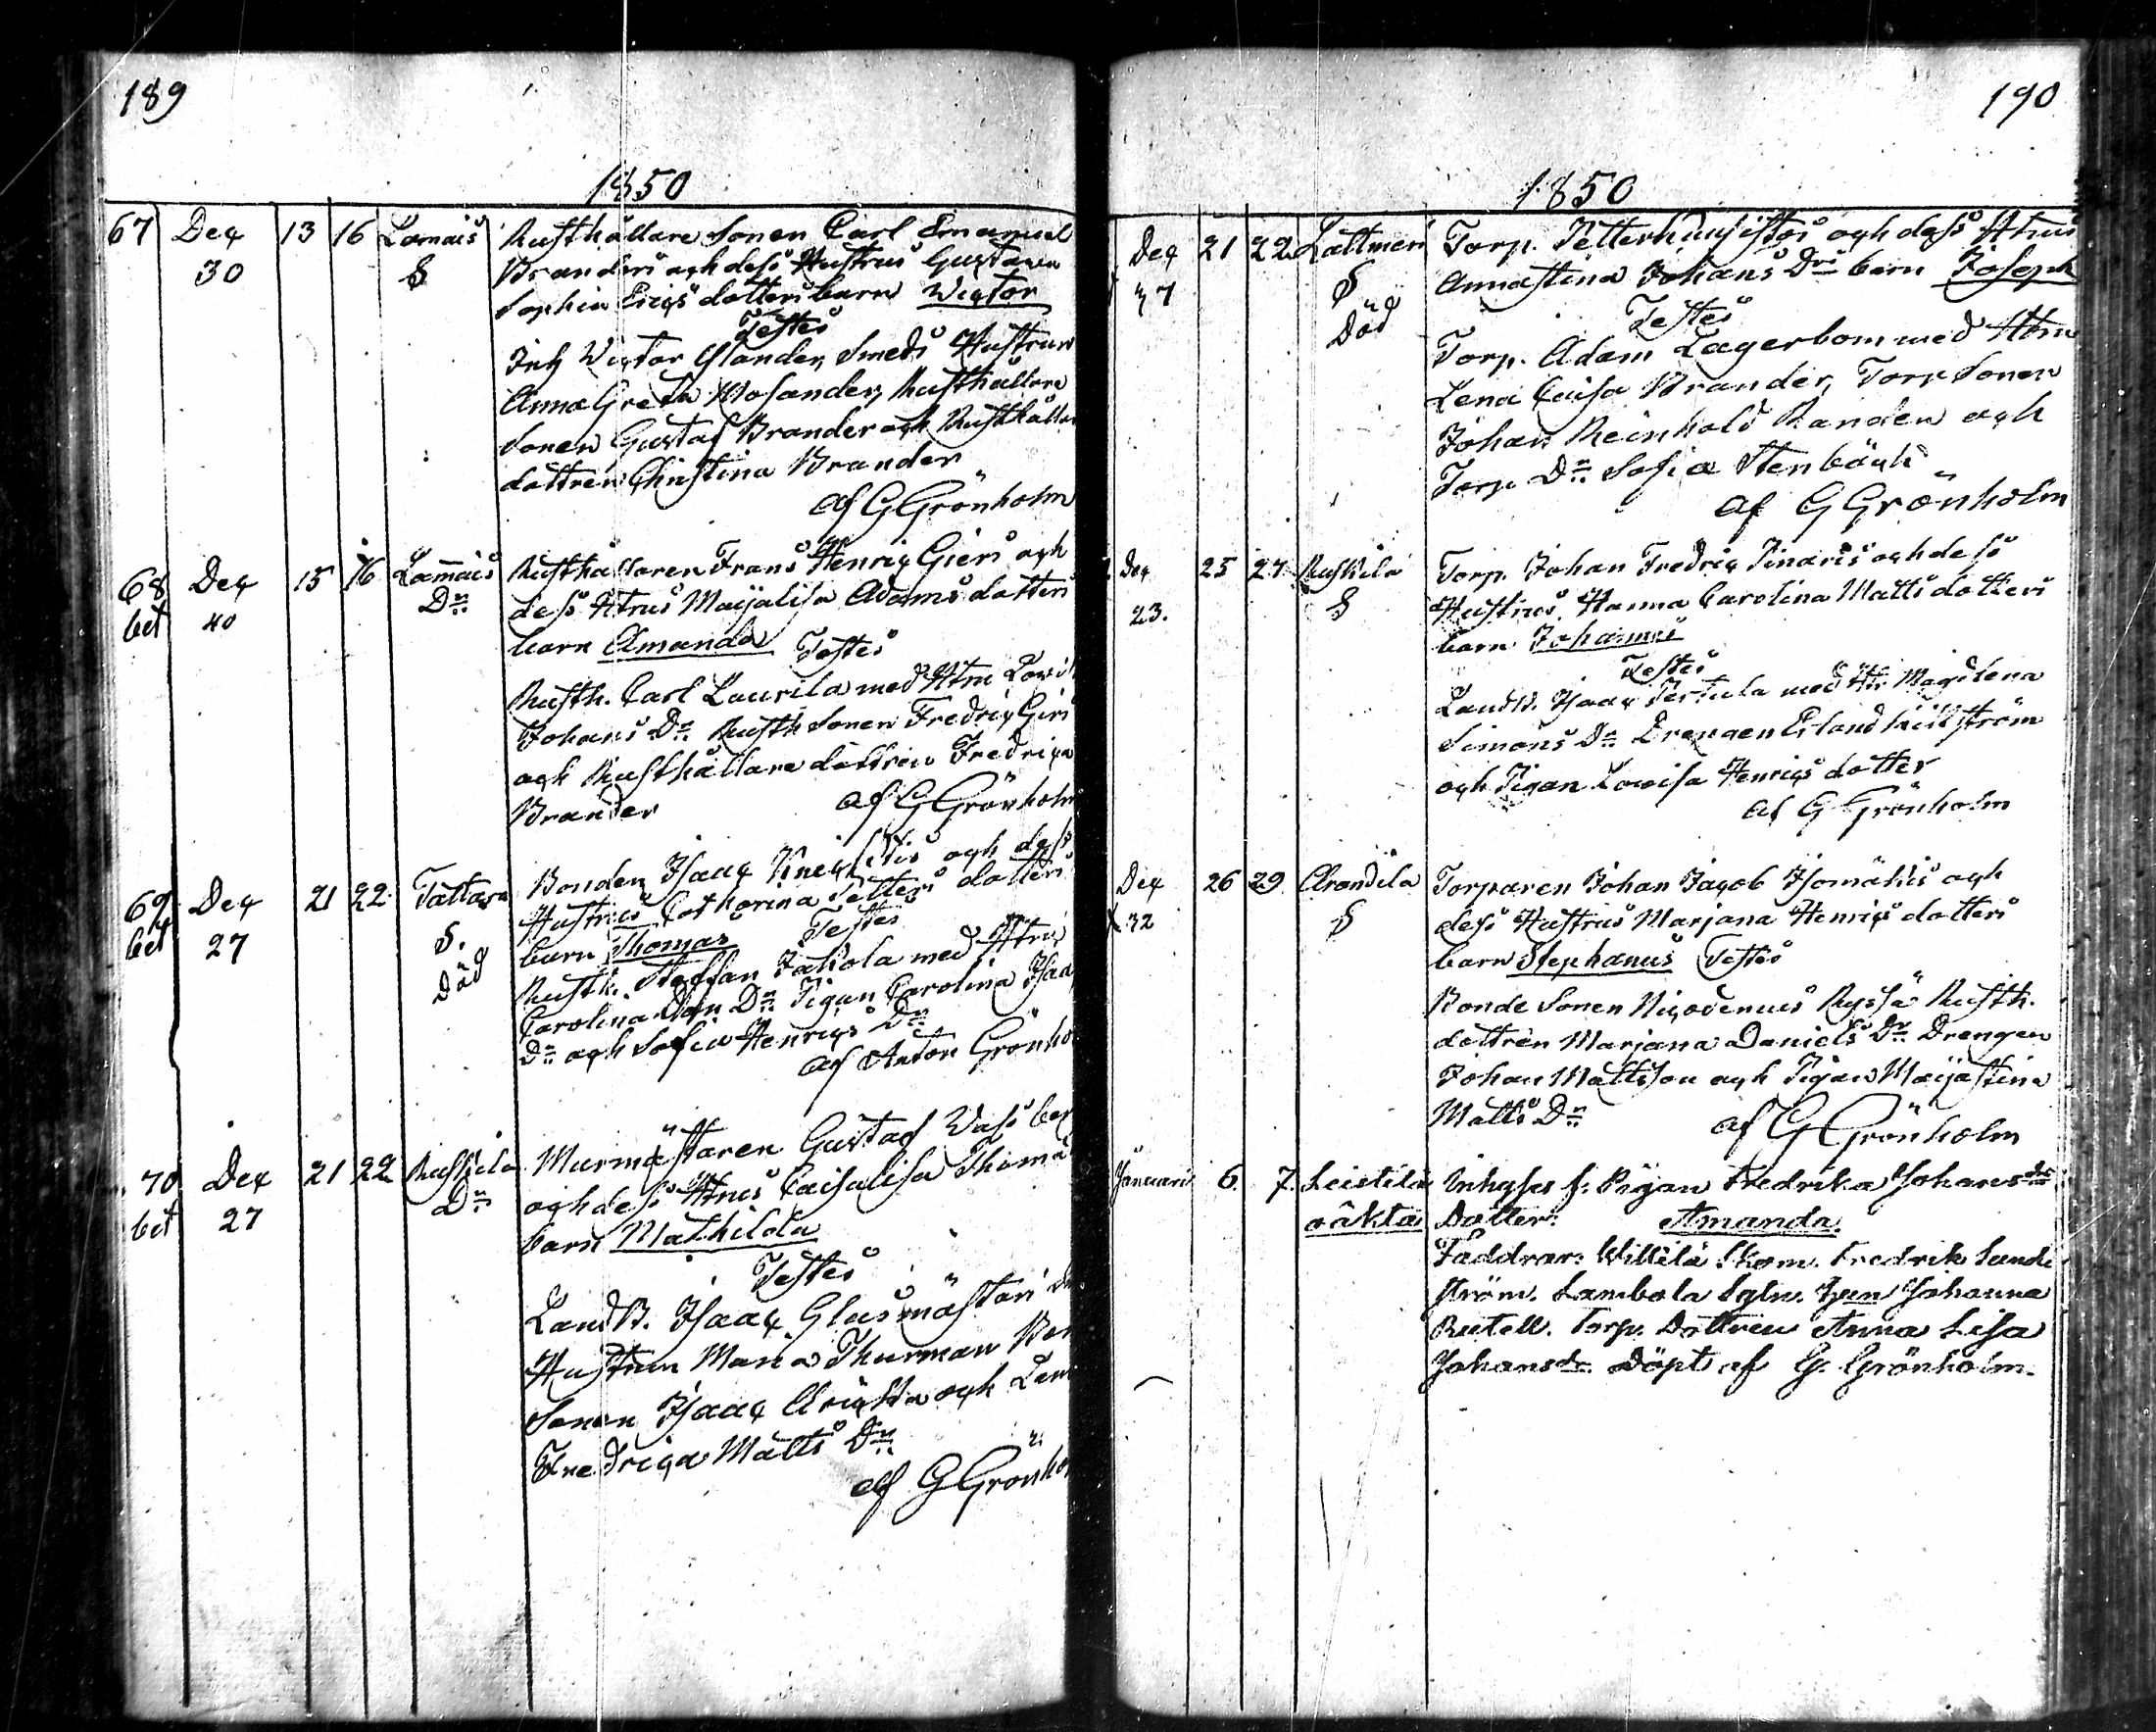 189
1850
67 Dec 13 16 Lamais Rusthållare Sonen Carl Emanuel
30 S Branders och dess Hustrus Gustava
Sophia Erics dotters barn Wictor
Testes
Inh Wictor Glander, Smeds Hustrun
Anna Greta Mosander, Rusthållare
Sonen Gustaf Brander och Rusthållare
dottren Christina Brander
af G Grönholm
68 Dec 15 16 Lamais Rusthållaren Frans Henric Giers och
bet 40 Dr dess Htrus Maijalisa Adams dotters
barn Amanda Testes
Rusth. Carl Laurila med Htru
Johans Dr Rusth Sonen Fredric Girs
och Rusthållare dottren Fredrica
Brander af G Grönholm
69 Dec 21 22 Tattara Bonden Isaac och dess
bet 27 S. Hustrus Catharina Petters dotters
Död barn Thomas Testes
Rusth. Staffan Jakola med Htru
Carolina Dr Pigan Carolina Isaa
Dr och Sofia Henrics Dr
af Anton Grönho
70 Dec 21 22 Ruskila Murmästaren Gustaf Wass
bet 27 Dr och dess Htrus Caisalisa Thoma
barn Mathilda
Testes
LandB. Isaac Glasmästari
Hustrun Maria Thurman
Sonen Isaac och
Fredrica Matts Dr
af G Grönho
190
1850
Dec 21 22 Lattmeri Torp. Petter och dess Htrus
27 S Annastina Johans Drs barn Joseph
Död Testes
Torp. Adam Lagerbom med Htru
Lena Caisa Brander, Torp Sonen
Johan Reinhold Randen och
Torp Dr Sofia Stenbäck
af G Grönholm
Dec 25 27 Ruskila Torp. Johan Fredric Pinaris och dess
23. S Hustrus Hanna Carolina Matts dotters
barn Johannes
Testes
LandB. Isaac Pertula med Htr Magdlena
Simons Dr Drengen Erland Kiillström
och Pigan Lovisa Henrics dotter
af G Grönholm
Dec 26 29 Arandila Torparen Johan Jacob Isomäkis och
32 S dess Hustrus Marjana Henrics dotters
barn Stephanus Testes
Bonde Sonen Nicodemus Ryssä Rusth.
dottren Marjana Daniels Dr Drengen
Johan Mattsson och Pigan Maijastina
Matts Dr af G Grönholm
Januari 6. 7. Leistilä Inhyses f. Pigan Fredrika Johansdrs
oäkta Dotter: Amanda.
Faddrar: Willilä Skom. Fredrik Sund
ström. Lambola Sgln. Johanna
Rutell. Torp. Dottren Anna Lisa
Johansdr. Döpt af G. Grönholm.